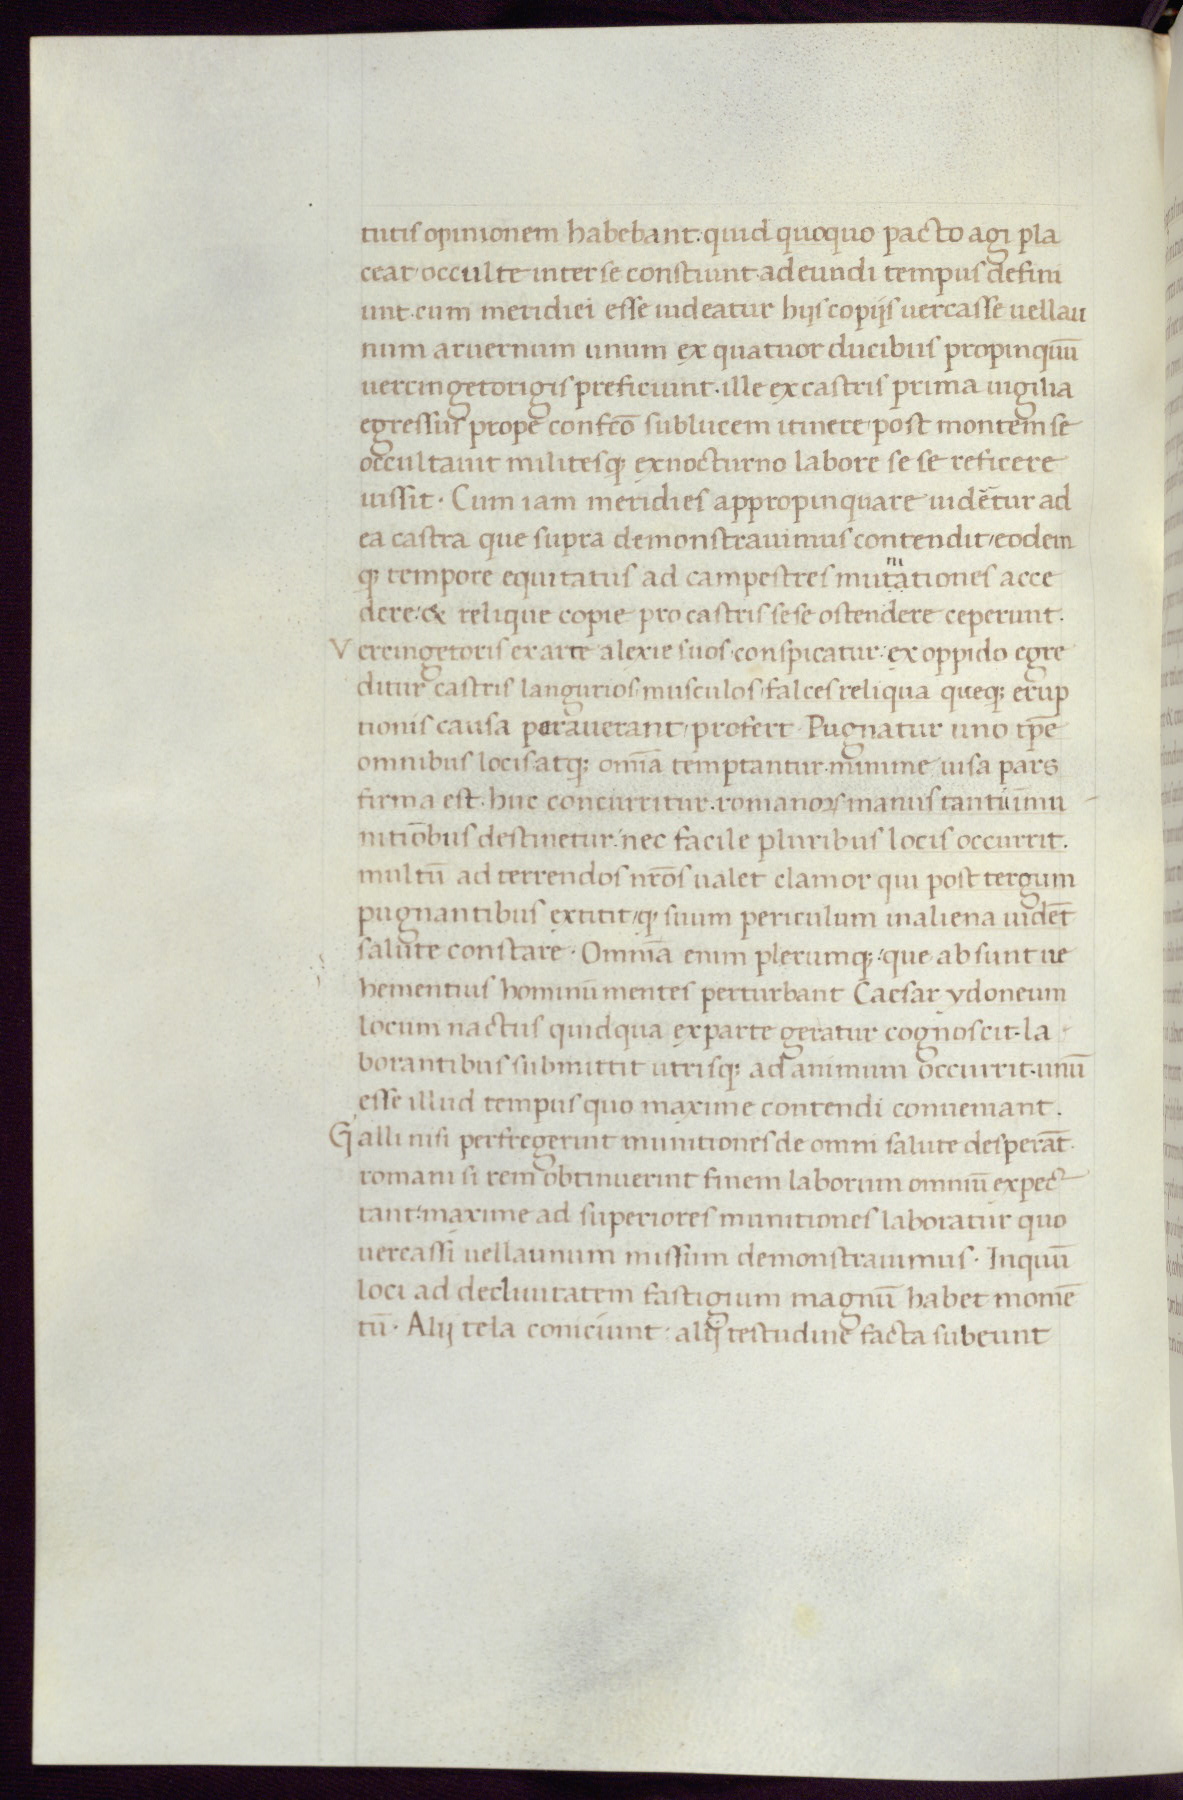 tutis opinionem habebant: quid quoquo pacto agi pla
ceat occulte inter se constiunt. adeundi tempus defini
unt. cum meridiei esse uideatur hijs copijs uercasse uellau
num aruernum unum ex quatuor ducibus propinquũ
uercingetorigis preficiunt. ille ex castris prima uigilia
egressus prope confcõ sub lucem itinere post montem se
occultauit militesq; ex nocturno labore se se reficere
iussit. Cum iam meridies appropinquare uidẽtur ad
ea castra que supra demonstrauimus contendit eodem
q; tempore equitatus ad campestres mutationes acce
dere: & relique copie pro castris sese ostendere ceperunt.
Vercingetoris ex arte alexie suos conspicatur: ex oppido egre
ditur castris langurios musculos falces reliqua queq; erup
tionis causa parauerant profert. Pugnatur uno tp̃e
omnibus locis atq; omĩa temptantur. minime uisa pars
firma est. huc concurritur. romanoꝝ manus tantũ imu
nitiõbus destinetur. nec facile pluribus locis occurrit.
multũ ad terrendos nr̃os ualet clamor qui post tergum
pugnantibus extitit, q; suum periculum in aliena uidẽt
salute constare. Omnĩa enim plerumq; que absunt ue
hementius hominũ mentes perturbant Caesar ydoneum
locum nactus quid qua ex parte geratur cognoscit. la
borantibus submittit utrisq; ad animum occurrit. unũ
esse illud tempus quo maxime contendi conueniant.
Galli nisi perfregerint munitiones de omni salute desperãt.
romani si rem obtinuerint finem laborum omniũ expec
tant: maxime ad superiores munitiones laboratur quo
uercassi uellaunum missum demonstrauimus. Inquũ
loci ad decliuitatem fastigium magnũ habet momẽ
tũ. Alij tela coniciunt: alij testudine facta subeunt